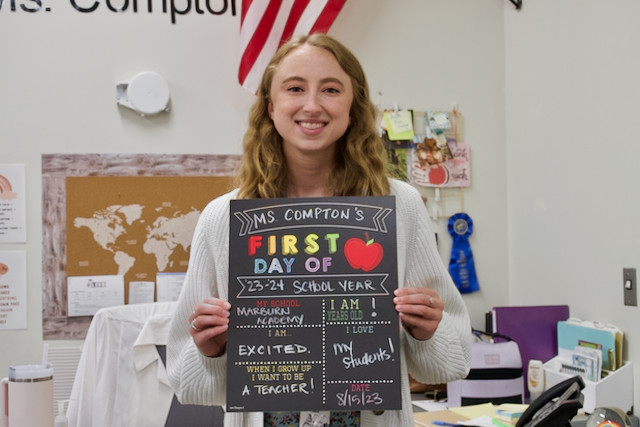 Ms. Compton
MS. COMPTON'S
FIRST
DAY OF
'23-24 SCHOOL YEAR
MY SCHOOL
MARBURN
ACADEMY
I AM !
YEARS OLD
I AM...
EXCITED.
I LOVE
My
students!
WHEN I GROW UP
I WANT TO BE
A TEACHER!
DATE
8/15/23